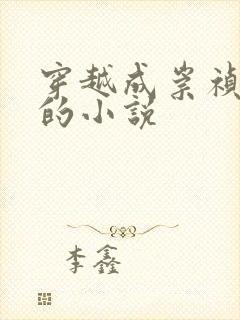 穿越成崇祯
的小说
李鑫